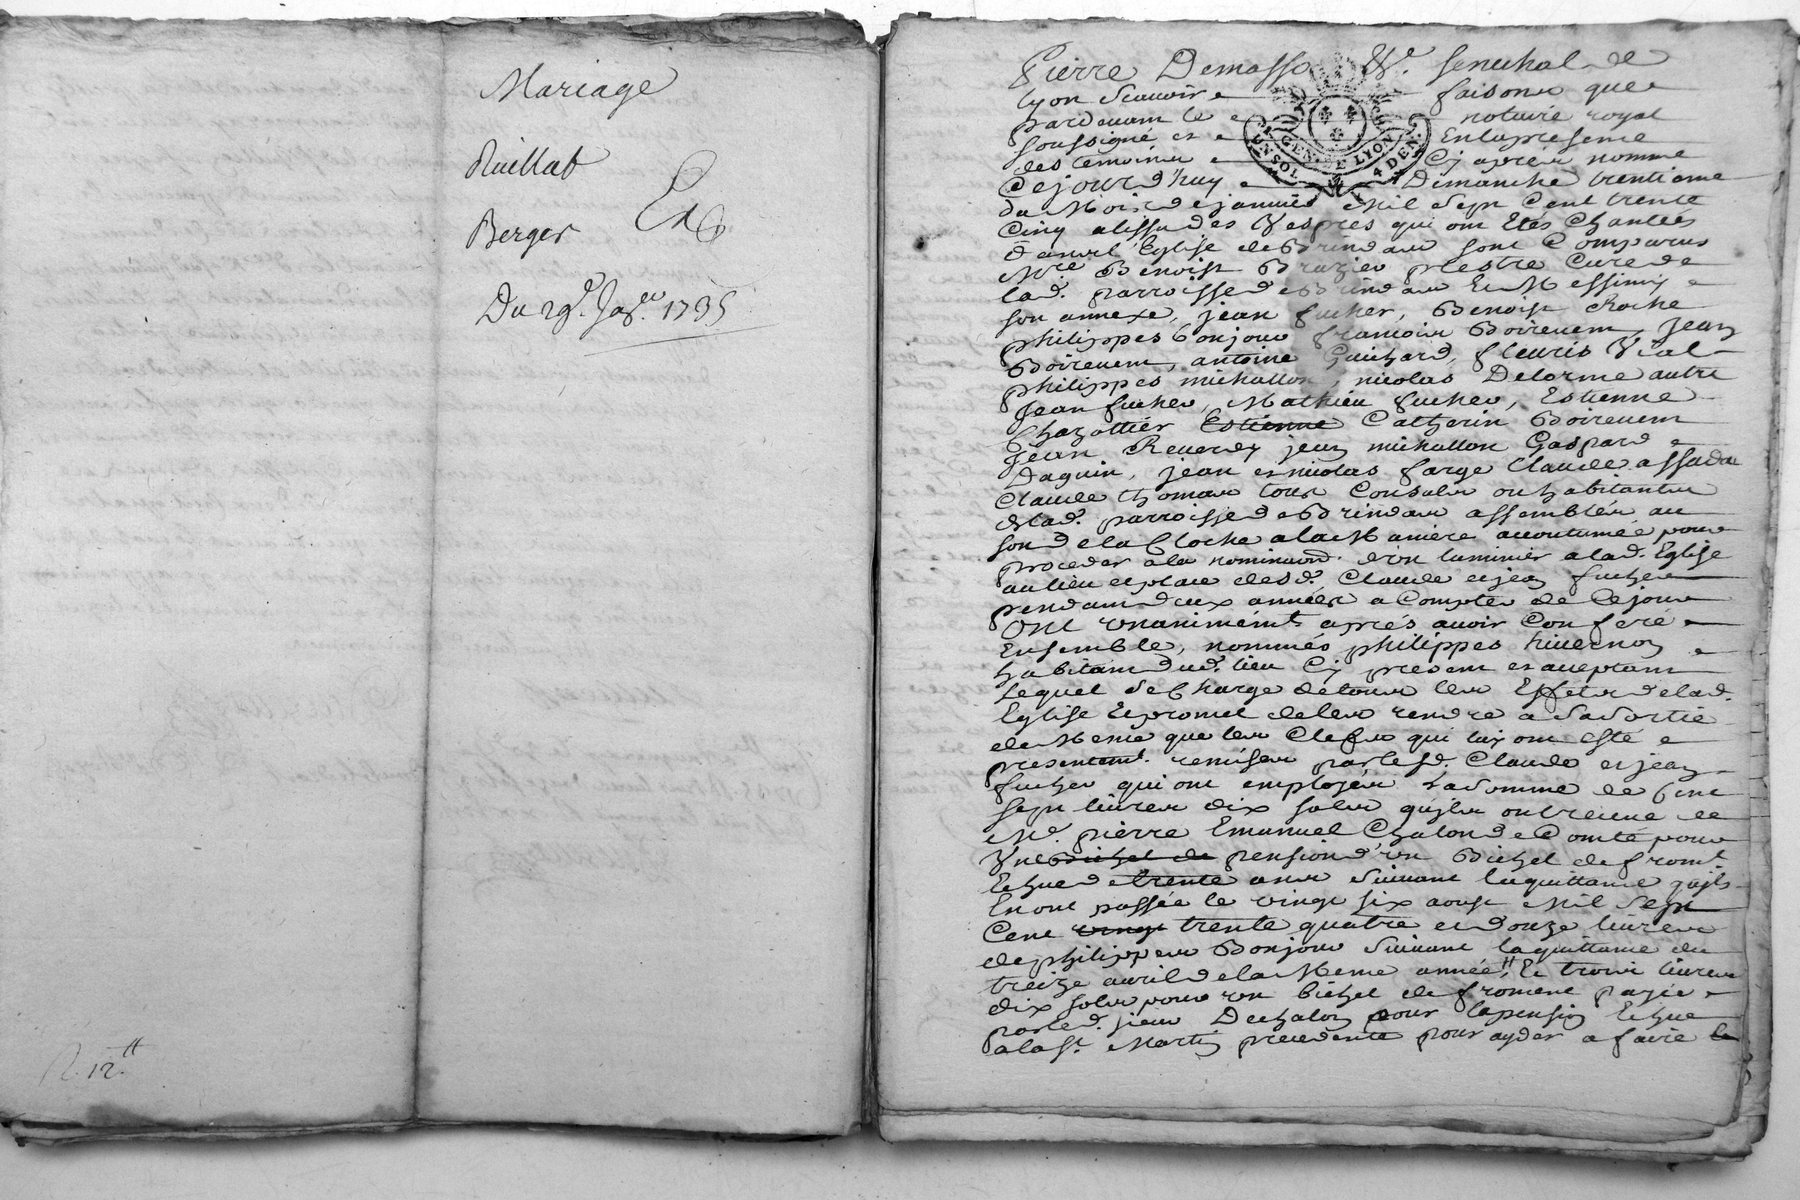 Mariage
Berger
Du 29e. Jaer. 1735
12.tt
Pierre Demasso Sr. Senechal de
Lyon Scauoir faisons que
pardeuant le notaire royal
soussigné et En la presence
des temoins Cy apres nommé
Cejourd'huy Dimanche trentieme
du Mois de januier Mil Sept Cent trente
Cinq alissue des Vespres qui ont Etés Chantées
dans l'Eglise de Brindas sont Comparus
Mre Benoist Brazier prestre Curé de
lad. parroisse de Brindas Et Messimy
son annexe, jean fucher, Benoist Roche
philippes bonjour francois Boireuent, Jean
Boireuent, antoine Guichard, fleuris Vial
philippes michallon, nicolas Delorme autre
Jean fucher, Mathieu fucher, Estienne
Chazottier Estienne Catherin Boireuent
Jean Reuerdy jean michallon Gaspard
Daguin, jean et nicolas farge Claude assada
Claude thomas tous Consuls ou habitants
de lad. parroisse de Brindas assemblés au
son de la Cloche ala Maniere accoutumée pour
proceder ala nominaon. d'un luminier alad. Eglise
au lieu et place desd. Claude et jean fucher
pendant deux années a Compter de Ce jour
Ont vnanimemt. apres auoir Conferé
Ensemble, nommés philippes
habitant dud. lieu Cy present et acceptant
Lequel se Charge de tous les Effets de lad.
Eglise Et promet de les rendre a Sa Sortie
de Meme que les Clefs qui luy ont esté
presentemt. remises par lesd. Claude et jean
fucher qui ont employés La Somme de Cent
sept liures dix sols qujls ont receue de
Mr. pierre Emanuel Chalon de Comte pour
Vne Bichet de pension d'un Bichet de fromt.
Echue de trente ans Suiuant la quittance qujls
En ont passée le vingt six aoust Mil Sept
Cent vingt trente quatre et douze liures
de philippes Bonjour Suiuant la quittance du
treize auril de la Meme année, Et trois liures
dix sols pour vn bichet de froment payée
par led. sieur Dechalon pour la pension Echue
ala St. Martin precedente pour ayder a faire le